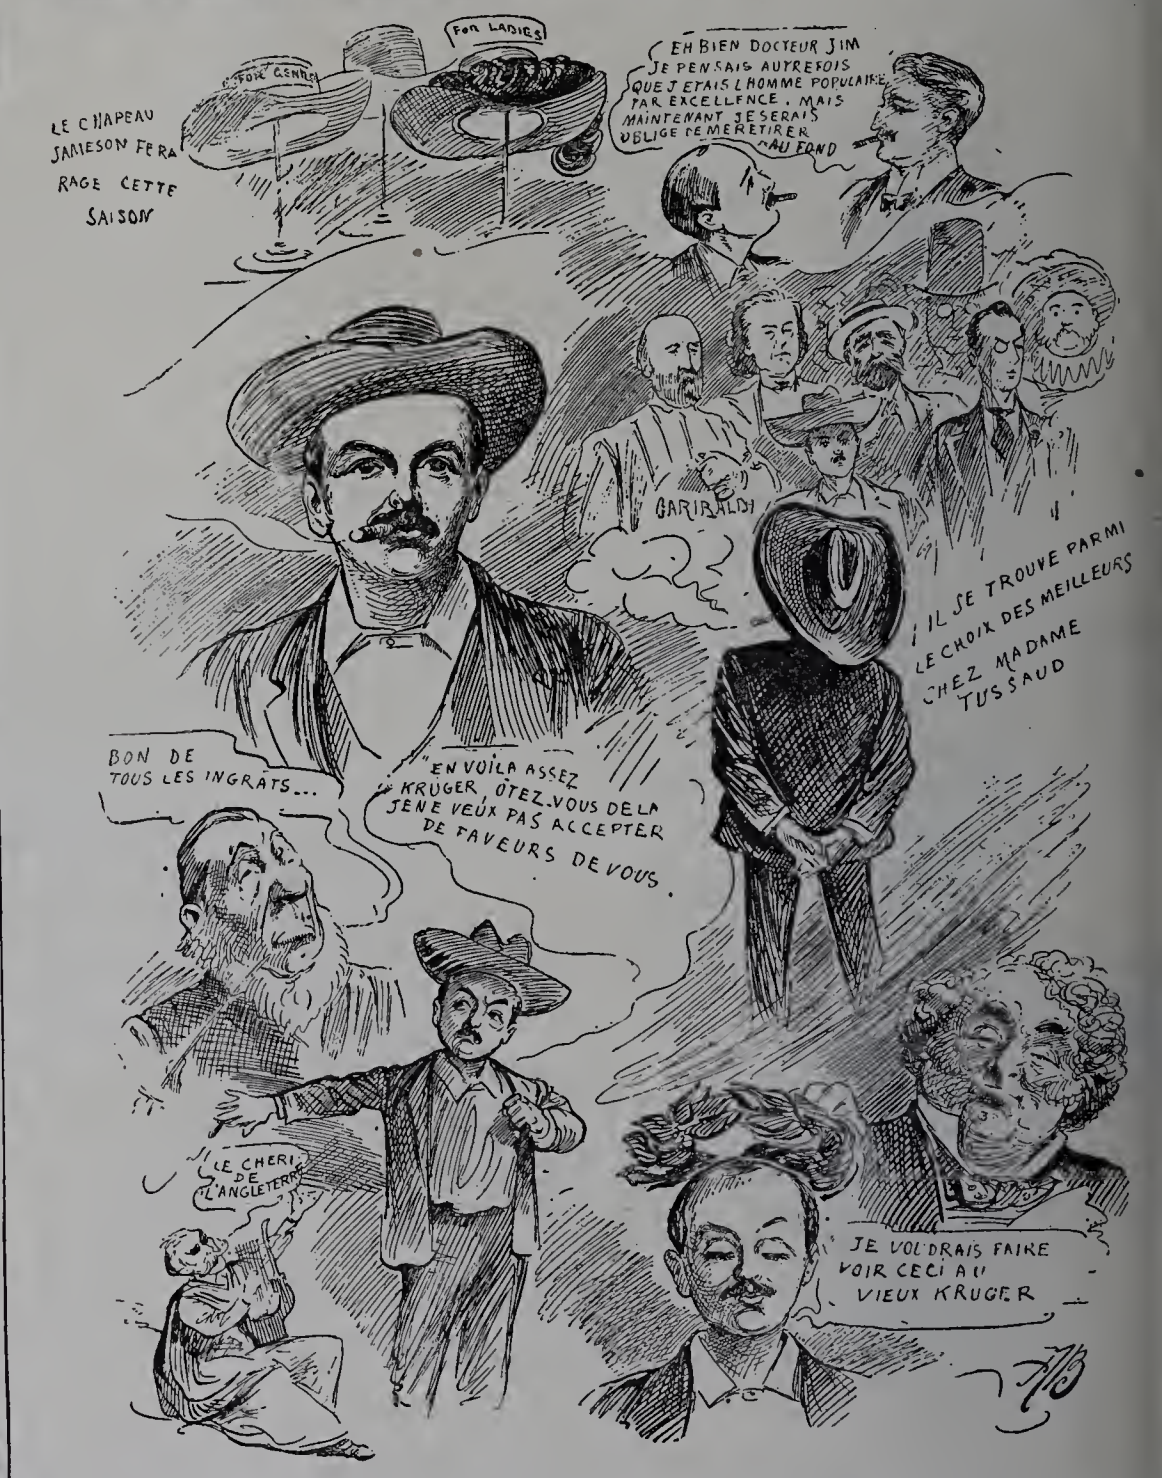 FOR LADIES
FOR GENTS
LE CHAPEAU
JAMESON FERA
RAGE CETTE
SAISON
EH BIEN DOCTEUR JIM
JE PENSAIS AUTREFOIS
QUE J ETAIS L HOMME POPULAIRE
PAR EXCELLENCE. MAIS
MAINTENANT JE SERAIS
OBLIGE DE ME RETIRER
AU FOND
GARIBALDI
IL SE TROUVE PARMI
LE CHOIX DES MEILLEURS
CHEZ MADAME
TUSSAUD
BON DE
TOUS LES INGRATS...
"EN VOILA ASSEZ
KRUGER, OTEZ-VOUS DE LA
JE NE VEUX PAS ACCEPTER
DE FAVEURS DE VOUS.
LE CHERI
DE
L'ANGLETERRE
JE VOUDRAIS FAIRE
VOIR CECI AU
VIEUX KRUGER